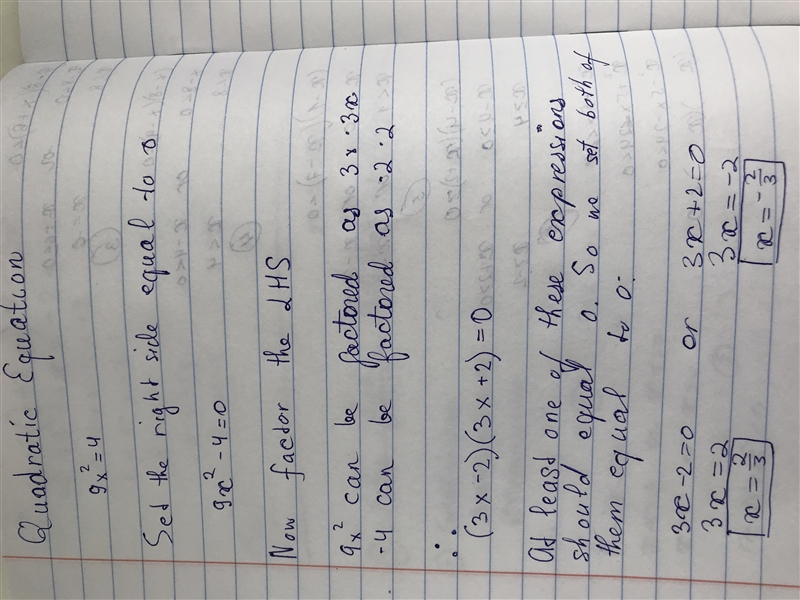 Quadratic Equation
9x² = 4
Set the right side equal to 0
9x² - 4 = 0
Now factor the LHS
9x² can be factored as 3x · 3x
-4 can be factored as -2 · 2
∴
(3x - 2)(3x + 2) = 0
At least one of these expressions
should equal 0. So we set both of
them equal to 0.
3x - 2 = 0 or 3x + 2 = 0
3x = 2 3x = -2
x = 2/3 x = -2/3